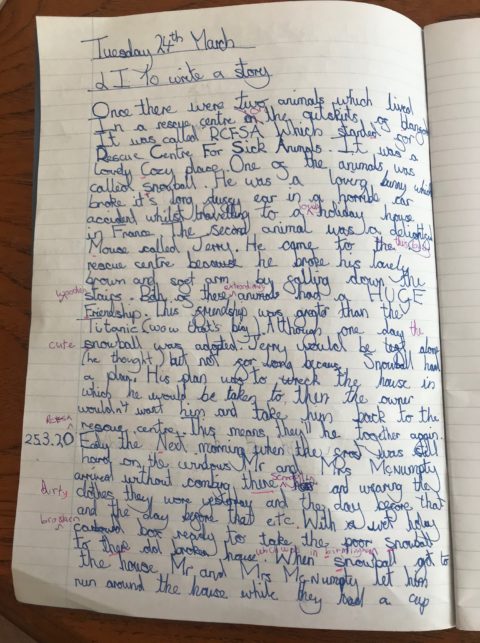 Tuesday 24th March
L I To write a story
Once there were two animals which lived
In a rescue centre on the outskirts of
It was called RCFSA which stands for
Rescue Centre For Sick Animals. It was a
lovely cozy place. One of the animals was
called snowball. He was a loving bunny which
broke it's long fussy ear in a horrible car
accident whilst travelling to a holiday house
in France. The second animal was a
Mouse called Jerry. He came to the
rescue centre because he broke his lovely
brown and soft arm by falling down the
wooden stairs. Both of these animals had a HUGE
Friendship. This friendship was greater than the
Titanic (wow that's big). Although one day the
cute snowball was adopted. Jerry would be left alone
(he thought) but not for long because Snowball had
a plan. His plan was to wreck the house in
which he would be taken to then the owner
wouldn't want him and take him back to the
RCFSA rescue centre. This means they'll be together again.
25.3.20 Early the Next morning when the frost was still
hard on the windows Mr and Mrs McNumpty
arrived without combing there hair and wearing the
dirty clothes they wore yesterday and they day before that
and the day before that etc. With a wet holey
broken cardboard box ready to take the poor snowball
to their old broken house which was in birmingham. When snowball got to
the house Mr and Mrs McNumpty let him
run around the house while they had a cup